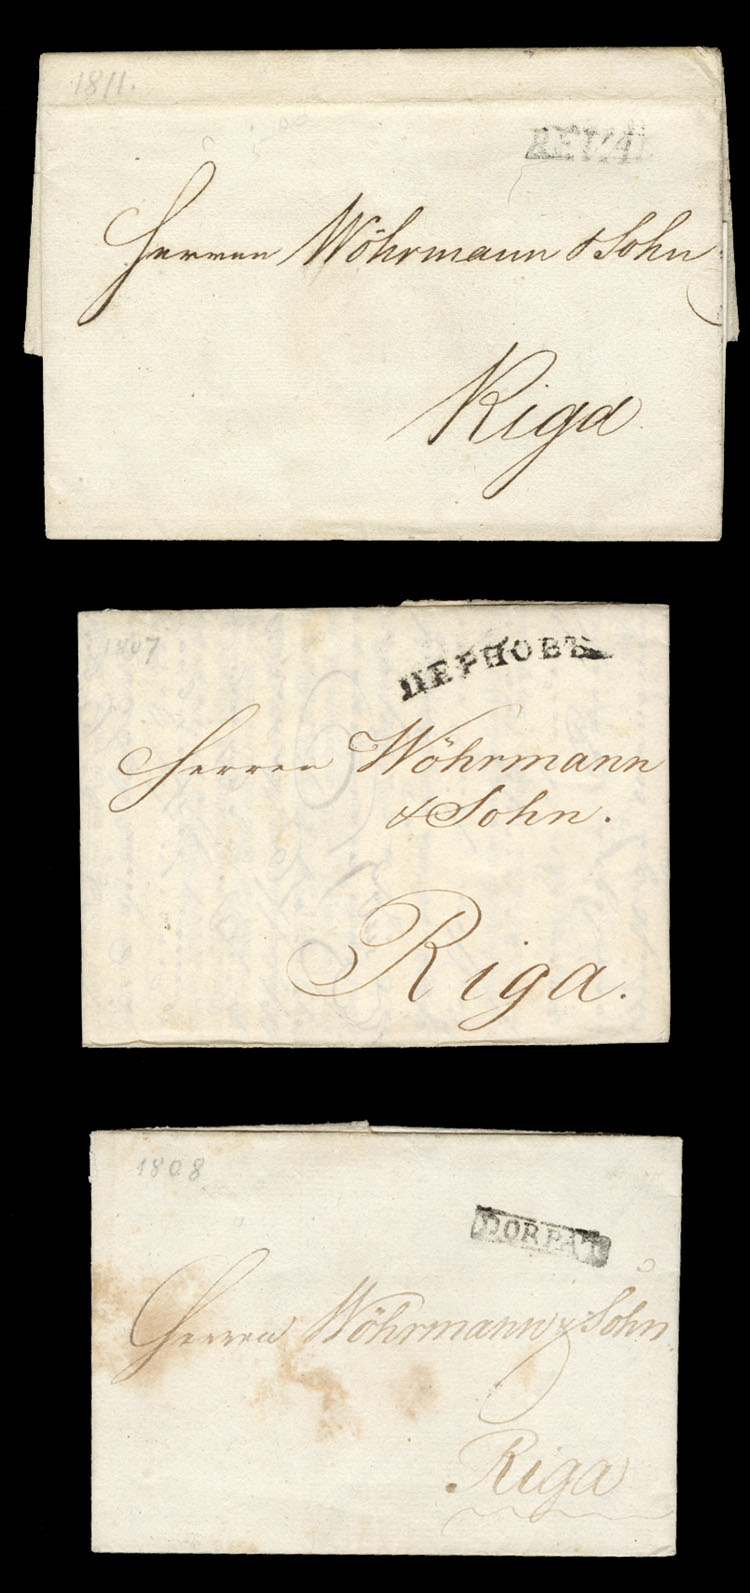 1811.
REVAL
Herren Wöhrmann & Sohn
Riga
1807
ПЕРНОВЪ
Herren Wöhrmann
& Sohn.
Riga.
1808
DORPAT
Herren Wöhrmann & Sohn
Riga